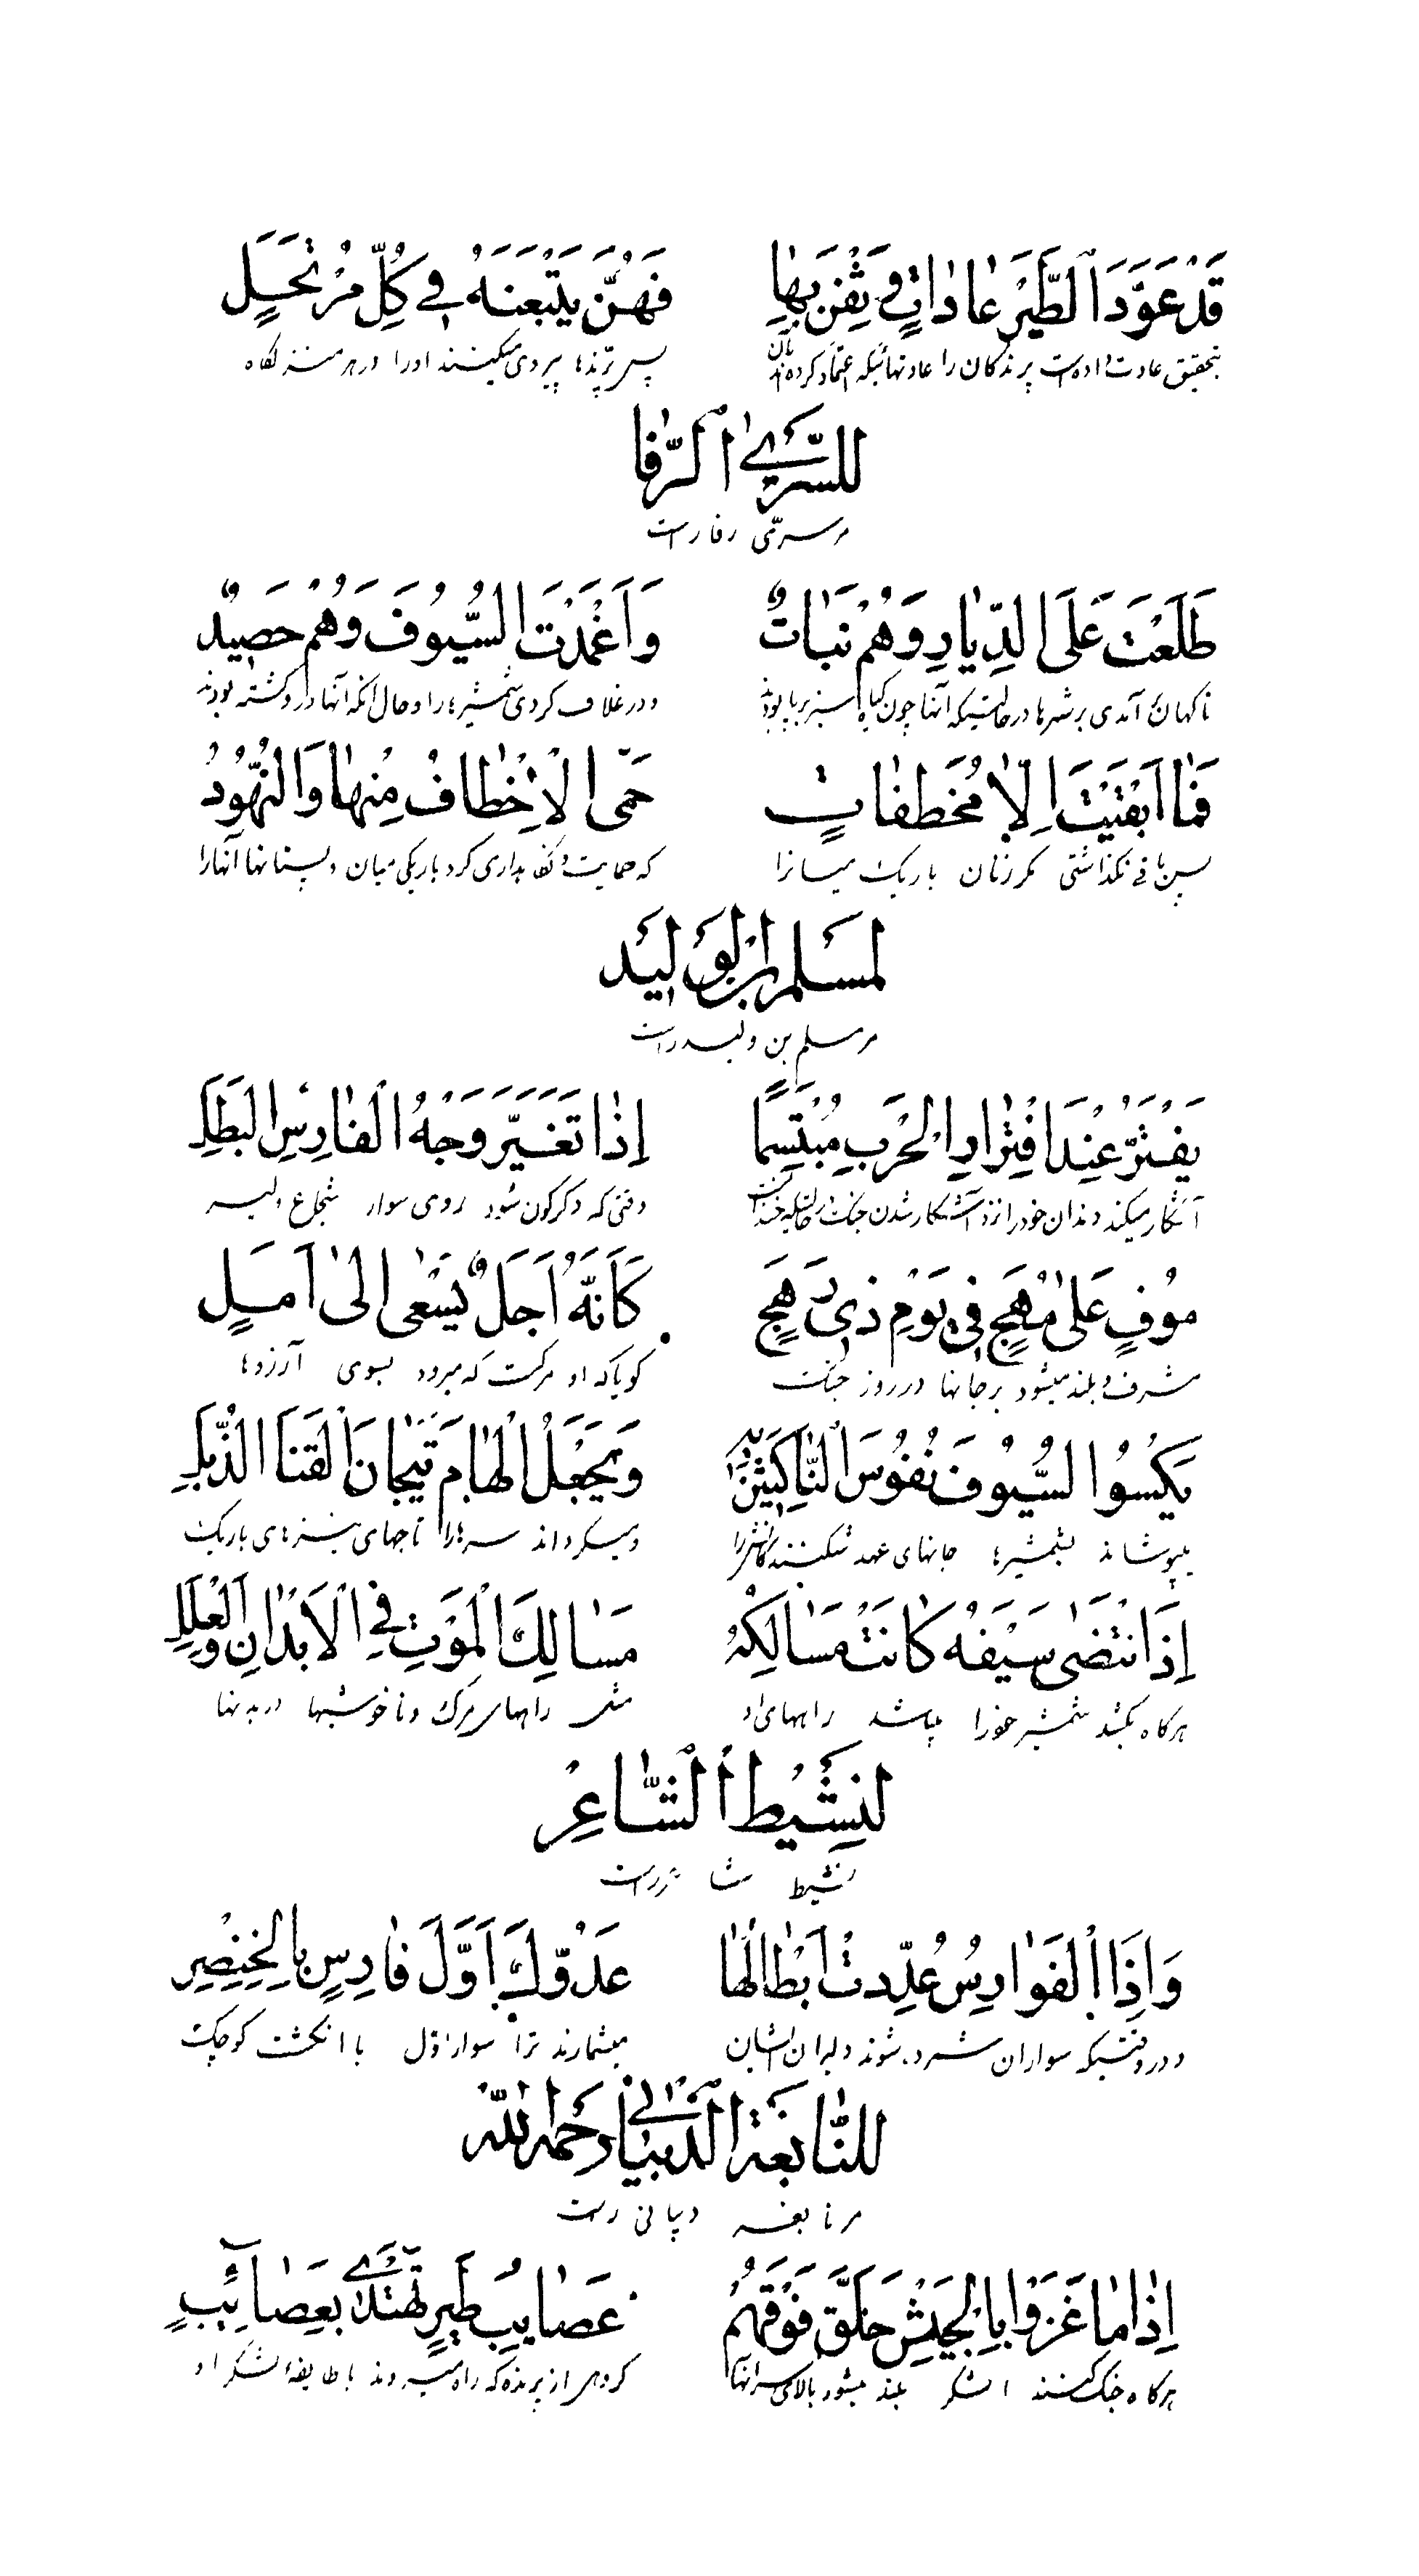 قَدْ عَوَّدَ الطَّيْرَ عَادَاتٍ وَثِقْنَ بِهَا فَهُنَّ يَتْبَعْنَهُ فِي كُلِّ مُرْتَحَلٍ
بتحقیق عادت داده است پرندکان را عادتهائیکه اعتماد کرده‌اند بآن پس پرندها پیروی میکنند اورا در هر منزلگاه
للسَّرِيِّ الرَّفَا
مر سری رفا راست
طَلَعْتَ عَلَى الدِّيَارِ وَهُمْ نَبَاتٌ وَاَغْمَدْتَ السُّيُوفَ وَهُمْ حَصِيدٌ
ناکهان آمدی بر شهرها در حالتیکه آنها چون کیاه سبز برپا بودند و در غلاف کردی شمشیرها را و حال آنکه آنها درو کشته بودند
فَمَا اَبْقَيْتَ اِلَّا مُخْطَفَاتٍ حَمَى الْاِخْطَافُ مِنْهَا وَالنُّهُودُ
پس باقی نکذاشتی مکر زنان باریک میانرا که حمایت و نکهداری کرد باریکی میان و پستانها آنهارا
لمسلم ابن الوليد
مر مسلم بن ولید راست
يَفْتَرُّ عِنْدَ افْتِرَارِ الْحَرْبِ مُبْتَسِمًا اِذَا تَغَيَّرَ وَجْهُ الْفَارِسِ الْبَطَلِ
آشکار میکند دندان خودرا نزد آشکار شدن جنک در حالتیکه خندانست وقتی که دکرکون شود روی سوار شجاع دلیر
مُوفٍ عَلَى مُهَجٍ فِي يَوْمِ ذِي رَهَجٍ كَأَنَّهُ اَجَلٌ يَسْعَى اِلَى اَمَلٍ
مشرف و بلند میشود بر جانها در روز جنک کویا که او مرکست که میرود بسوی آرزوها
يَكْسُوا السُّيُوفَ نُفُوسَ النَّاكِثِينَ بِهِ وَيَجْعَلُ الْهَامَ تِيجَانَ الْقَنَا الذُّبُلِ
میپوشاند بشمشیرها جانهای عهد شکنندکانرا و میکرداند سرهارا تاجهای نیزه‌های باریک
اِذَا انْتَضَى سَيْفَهُ كَانَتْ مَسَالِكُهُ مَسَالِكَ الْمَوْتِ فِي الْاَبْدَانِ وَالْعِلَلِ
هرکاه بکشد شمشیر خودرا میباشد راههای او مثل راههای مرک و ناخوشیها در بدنها
لنشيط الشاعر
نشیط شاعر راست
وَاِذَا الْفَوَارِسُ عُدِّدَتْ اَبْطَالُهَا عَدُّوكَ اَوَّلَ فَارِسٍ بِالْخِنْصِرِ
و در وقتیکه سواران شمرده شوند دلیران ایشان میشمارند ترا سوار اول با انکشت کوچک
للنابغة الذبياني رحمه الله
مر نابغه ذبیانی راست
اِذَا مَا غَزَوْا بِالْجَيْشِ حَلَّقَ فَوْقَهُمْ عَصَايِبُ طَيْرٍ تَهْتَدِي بِعَصَائِبِ
هرکاه جنک کنند با لشکر بلند میشود بالای سر آنها کروهی از پرنده که راه میروند با طایفه لشکر او